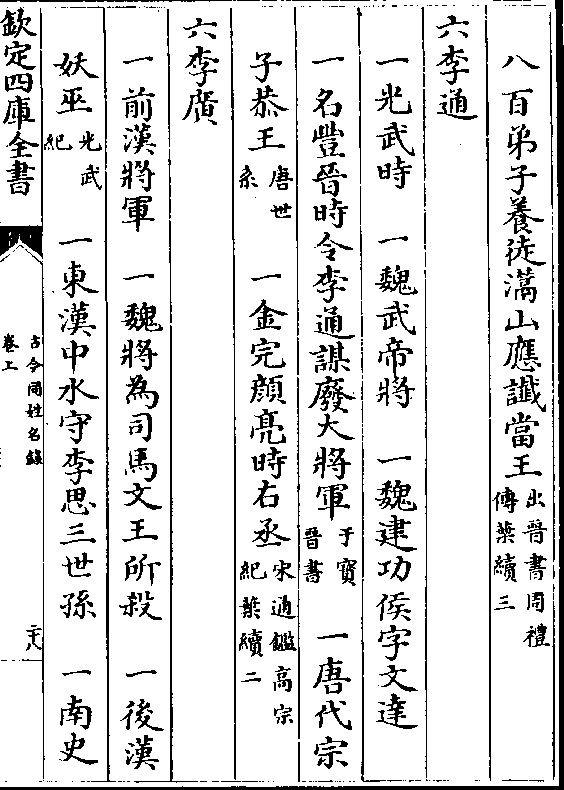 八百弟子養徒滿山應讖當王出晉書周禮
傳葉續三
六李通
一光武時 一魏武帝將 一魏建功侯字文達
一名豐晉時令李通謀廢大將軍于寳
晉書 一唐代宗
子恭王唐世
系 一金完顔亮時右丞宋通鑑高宗
紀葉續二
六李廣
一前漢將軍 一魏將為司馬文王所殺 一後漢
妖巫光武
紀 一東漢中水守李思三世孫 一南史
欽定四庫全書
古今同姓名錄
卷上
二十八